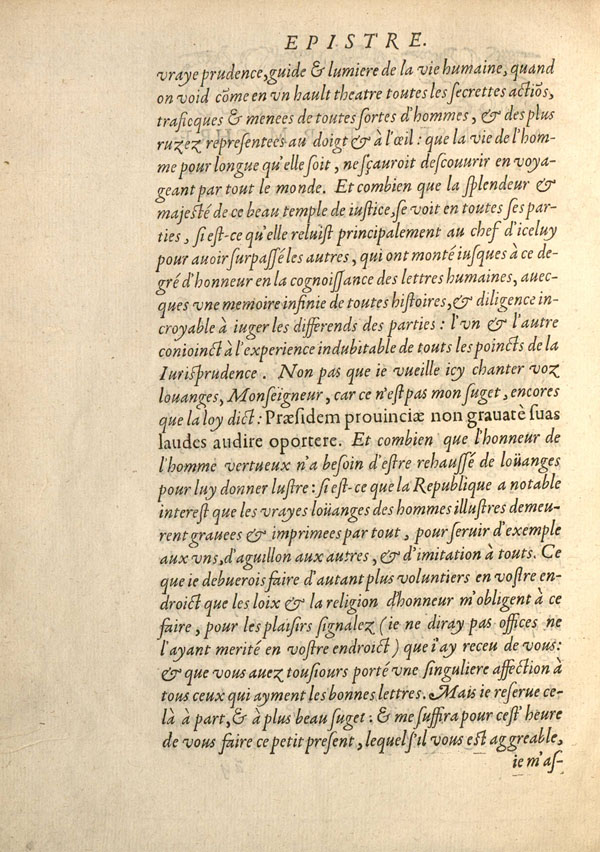 EPISTRE.
vraye prudence, guide & lumiere de la vie humaine, quand
on void cõme en vn hault theatre toutes les secrettes actiõs,
traficques & menees de toutes sortes d'hommes, & des plus
ruzez representees au doigt & à l'œil : que la vie de l'hom-
me pour longue qu'elle soit, ne sçauroit descouurir en voya-
geant par tout le monde. Et combien que la splendeur &
majesté de ce beau temple de iustice, se voit en toutes ses par-
ties, si est-ce qu'elle reluist principalement au chef d'iceluy
pour auoir surpassé les autres, qui ont monté iusques à ce de-
gré d'honneur en la cognoissance des lettres humaines, auec-
ques vne memoire infinie de toutes histoires, & diligence in-
croyable à iuger les differends des parties : l'vn & l'autre
conioinct à l'experience indubitable de touts les poincts de la
Iurisprudence. Non pas que ie vueille icy chanter voz
louanges, Monseigneur, car ce n'est pas mon suget, encores
que la loy dict : Præsidem prouinciæ non grauatè suas
laudes audire oportere. Et combien que l'honneur de
l'homme vertueux n'a besoin d'estre rehaussé de loüanges
pour luy donner lustre : si est-ce que la Republique a notable
interest que les vrayes loüanges des hommes illustres demeu-
rent grauees & imprimees par tout, pour seruir d'exemple
aux vns, d'aguillon aux autres, & d'imitation à touts. Ce
que ie debuerois faire d'autant plus voluntiers en vostre en-
droict que les loix & la religion d'honneur m'obligent à ce
faire, pour les plaisirs signalez (ie ne diray pas offices ne
l'ayant merité en vostre endroict) que i'ay receu de vous:
& que vous auez tousiours porté vne singuliere affection à
tous ceux qui ayment les bonnes lettres. Mais ie reserue ce-
là à part, & à plus beau suget : & me suffira pour cest' heure
de vous faire ce petit present, lequel s'il vous est aggreable,
ie m'as-